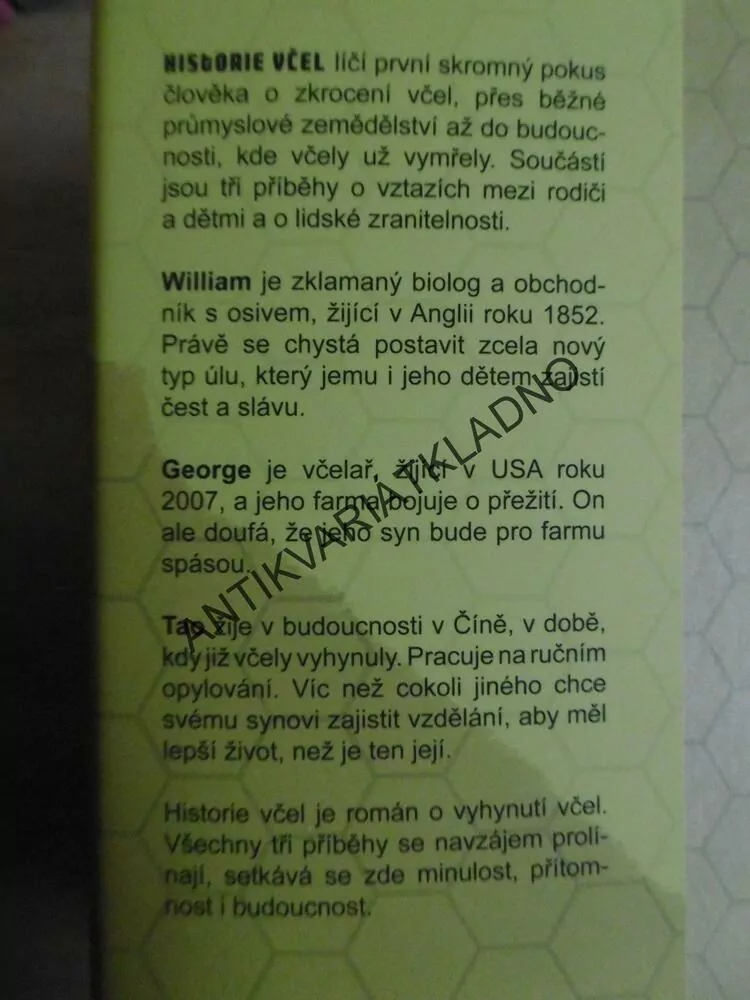 HISTORIE VČEL líčí první skromný pokus
člověka o zkrocení včel, přes běžné
průmyslové zemědělství až do budouc-
nosti, kde včely už vymřely. Součástí
jsou tři příběhy o vztazích mezi rodiči
a dětmi a o lidské zranitelnosti.
William je zklamaný biolog a obchod-
ník s osivem, žijící v Anglii roku 1852.
Právě se chystá postavit zcela nový
typ úlu, který jemu i jeho dětem zajistí
čest a slávu.
George je včelař, žijící v USA roku
2007, a jeho farma bojuje o přežití. On
ale doufá, že jeho syn bude pro farmu
spásou.
Tao žije v budoucnosti v Číně, v době,
kdy již včely vyhynuly. Pracuje na ručním
opylování. Víc než cokoli jiného chce
svému synovi zajistit vzdělání, aby měl
lepší život, než je ten její.
Historie včel je román o vyhynutí včel.
Všechny tři příběhy se navzájem prolí-
nají, setkává se zde minulost, přítom-
nost i budoucnost.
ANTIKVARIAT KLADNO